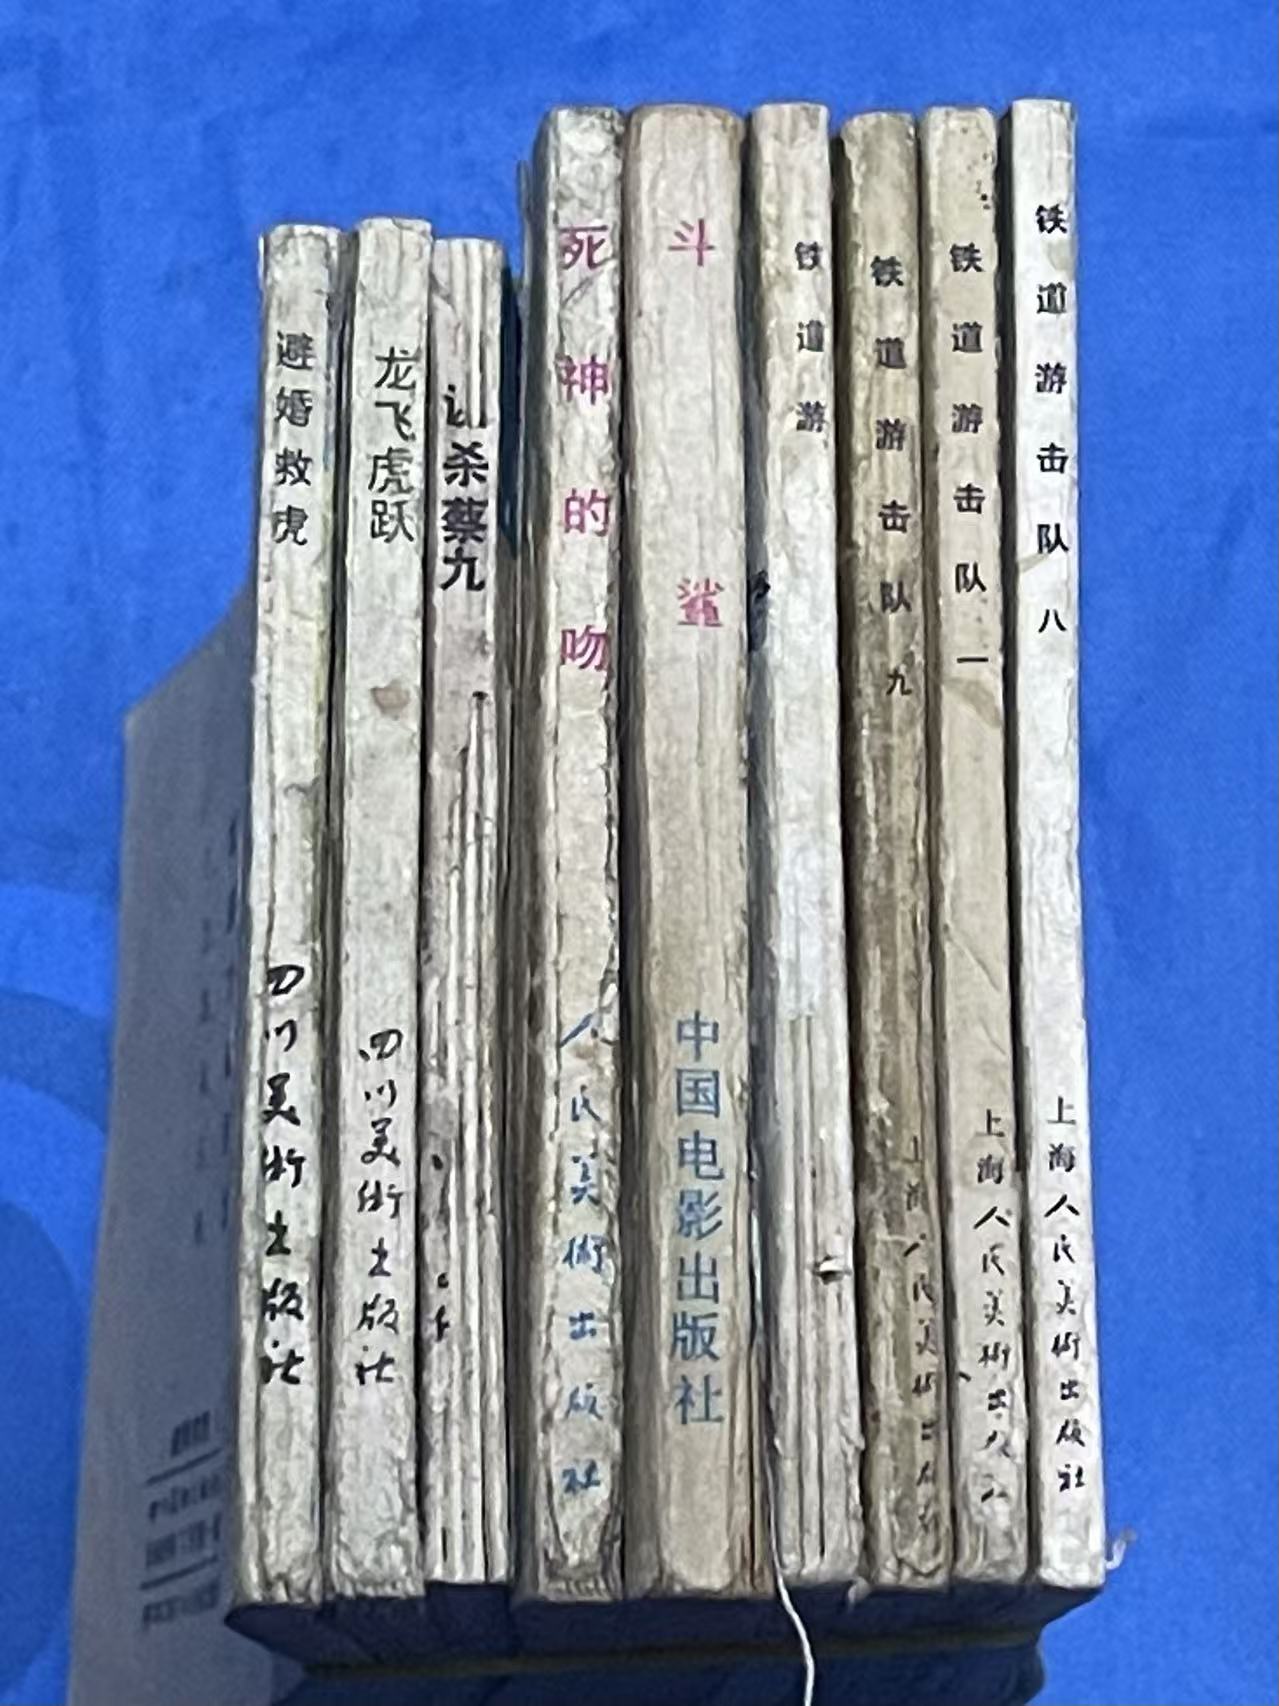 避婚救虎
四川美術出版社
龙飞虎跃
四川美術出版社
杀蔡九
死神的吻
人民美術出版社
斗鲨
中国电影出版社
铁道游
铁道游击队 九
上海人民美術出
铁道游击队 一
上海人民美術出版社
铁道游击队 八
上海人民美術出版社